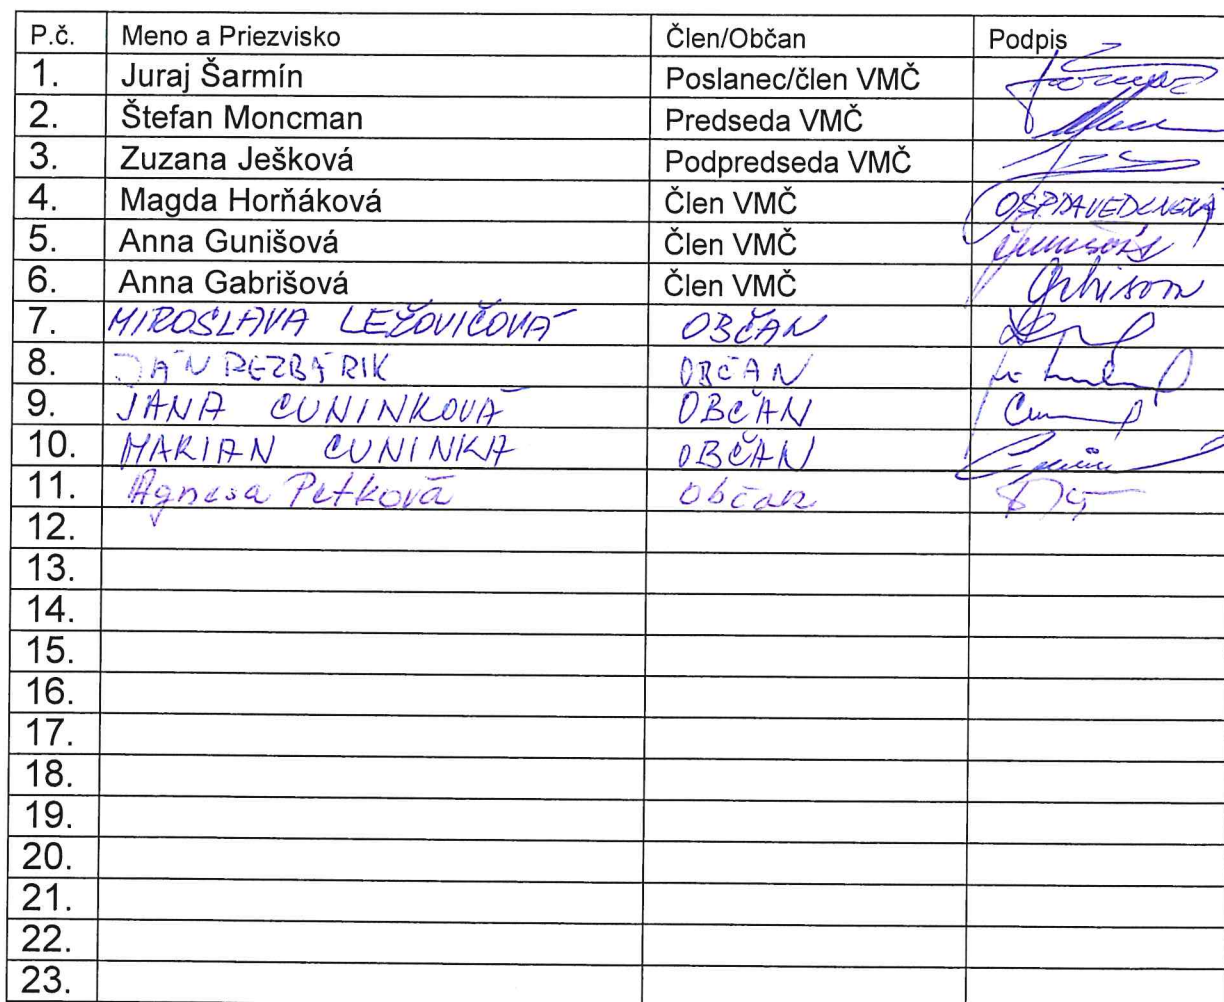 P.č. Meno a Priezvisko Člen/Občan Podpis
1. Juraj Šarmín Poslanec/člen VMČ
2. Štefan Moncman Predseda VMČ
3. Zuzana Ješková Podpredseda VMČ
4. Magda Horňáková Člen VMČ OSPRAVEDLNENÁ
5. Anna Gunišová Člen VMČ
6. Anna Gabrišová Člen VMČ
7. MIROSLAVA LEŽOVIČOVÁ OBČAN
8. JÁN REZBÁRIK OBČAN
9. JANA CUNINKOVÁ OBČAN
10. MARIAN CUNINKA OBČAN
11. Agnesa Petková Občan
12.
13.
14.
15.
16.
17.
18.
19.
20.
21.
22.
23.